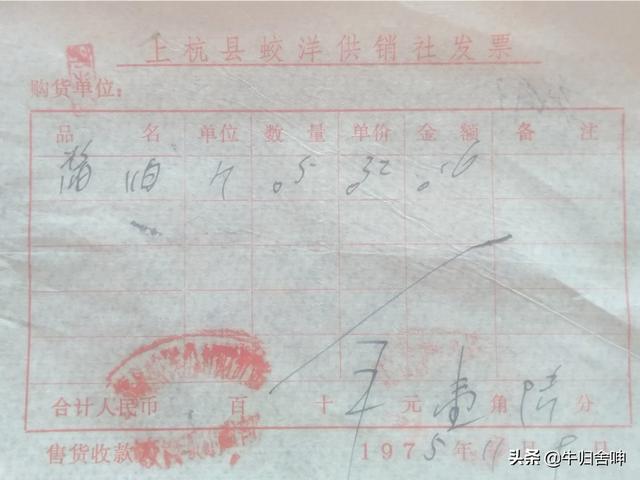 上杭县蛟洋供销社发票
购货单位:
品名 单位 数量 单价 金额 备注
.5 .32 .16
合计人民币 百 十 元 壹 角 陆 分
售货收款 1975年11月 日
头条 @牛归舍呻